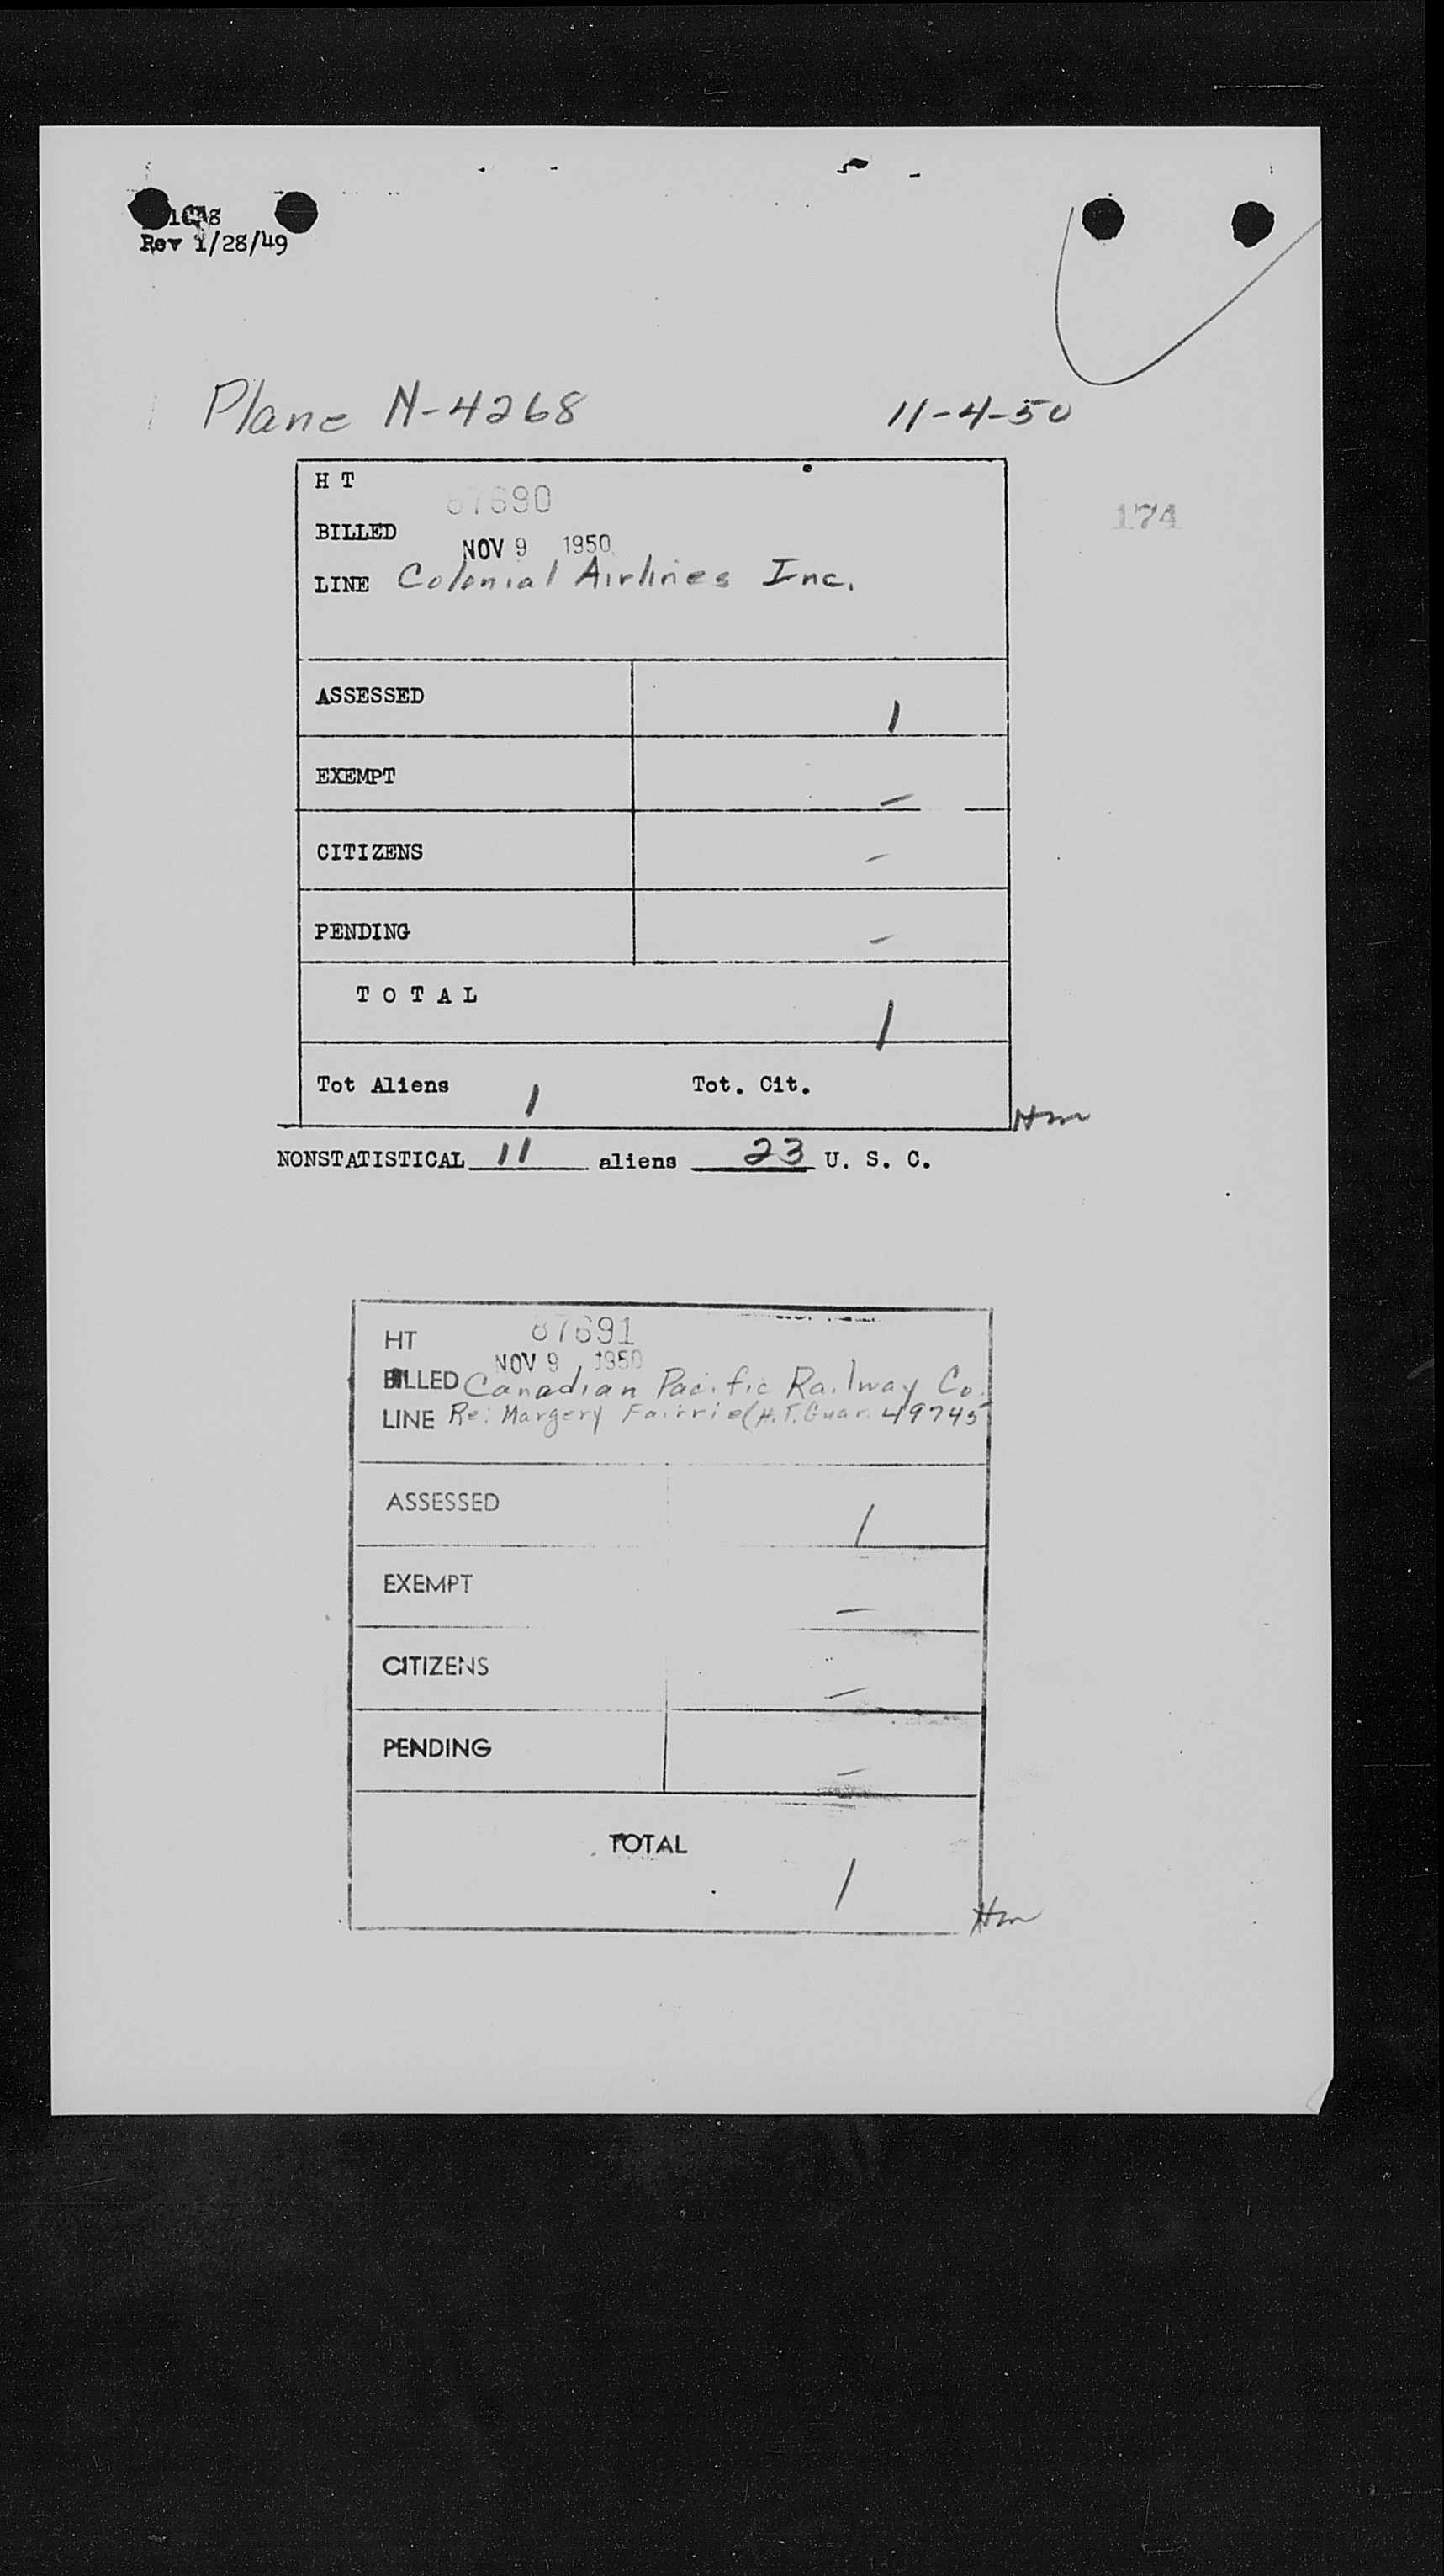 Rev 1/28/49
Plane N-4268 11-4-50
H T
87690
174
BILLED
NOV 9 1950
LINE Colonial Airlines Inc.
ASSESSED 1
EXEMPT –
CITIZENS –
PENDING –
T O T A L 1
Tot Aliens 1 Tot. Cit.
Hm
NONSTATISTICAL 11 aliens 23 U. S. C.
HT 87691
NOV 9 1950
BILLED Canadian Pacific Railway Co.
LINE Re: Margery Fairrie (H.T. Guar. 49745
ASSESSED 1
EXEMPT –
CITIZENS –
PENDING –
TOTAL 1
Hm